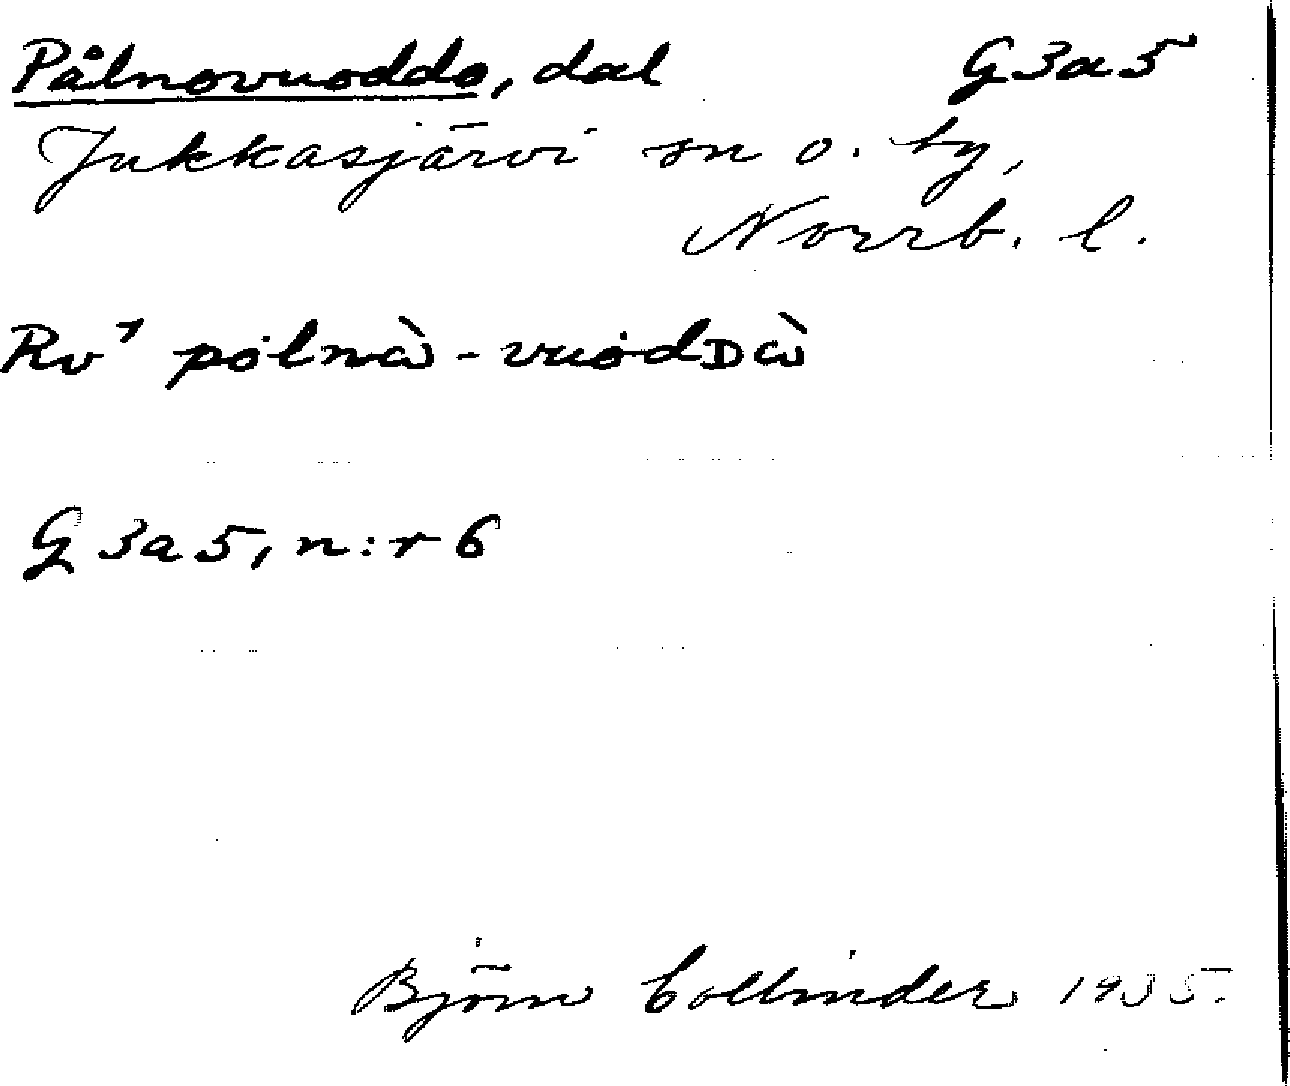 Pålnovuoddo, dal G3a5
Jukkasjärvi sn o. by,
Norrb. l.
Rv¹ pȯlnɷ̀ - vuȯdᴅɷ̀
G 3a5, n:r 6
Björn Collinder 1935.